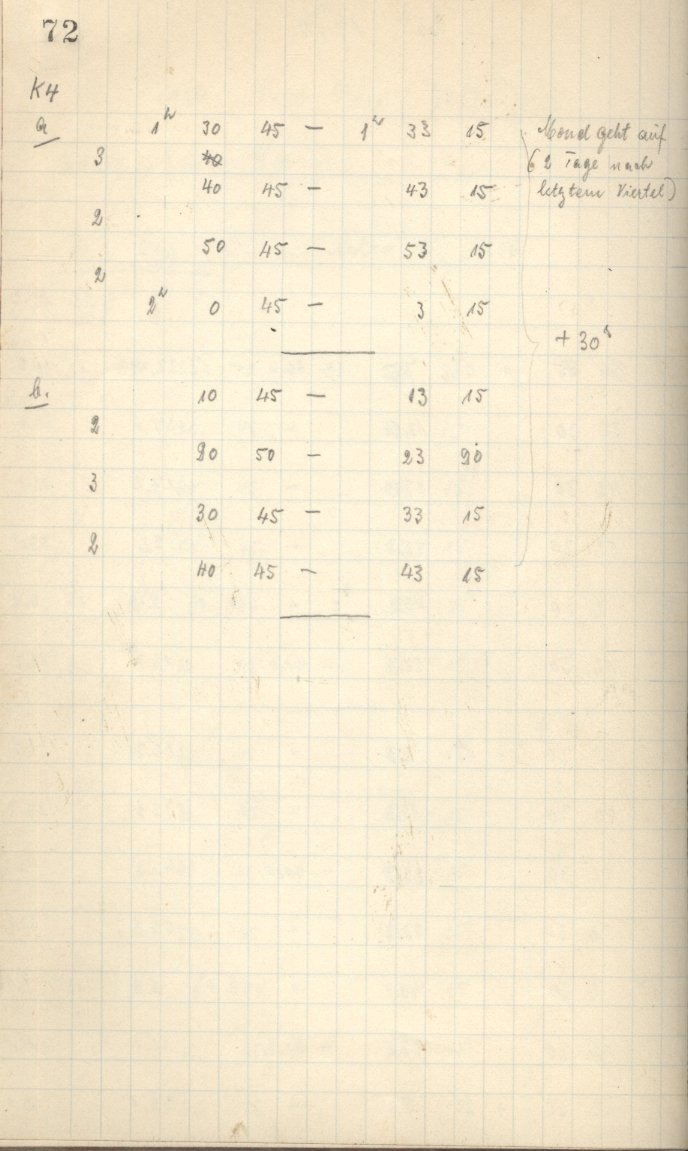 72
K4
a 1h 30 45 — 1h 33 15 Mond geht auf
3 40 (2 Tage nach
40 45 — 43 15 letztem Viertel)
2
50 45 — 53 15
2
2h 0 45 — 3 15
+ 30s
b. 10 45 — 13 15
2
20 50 — 23 20
3
30 45 — 33 15
2
40 45 — 43 15